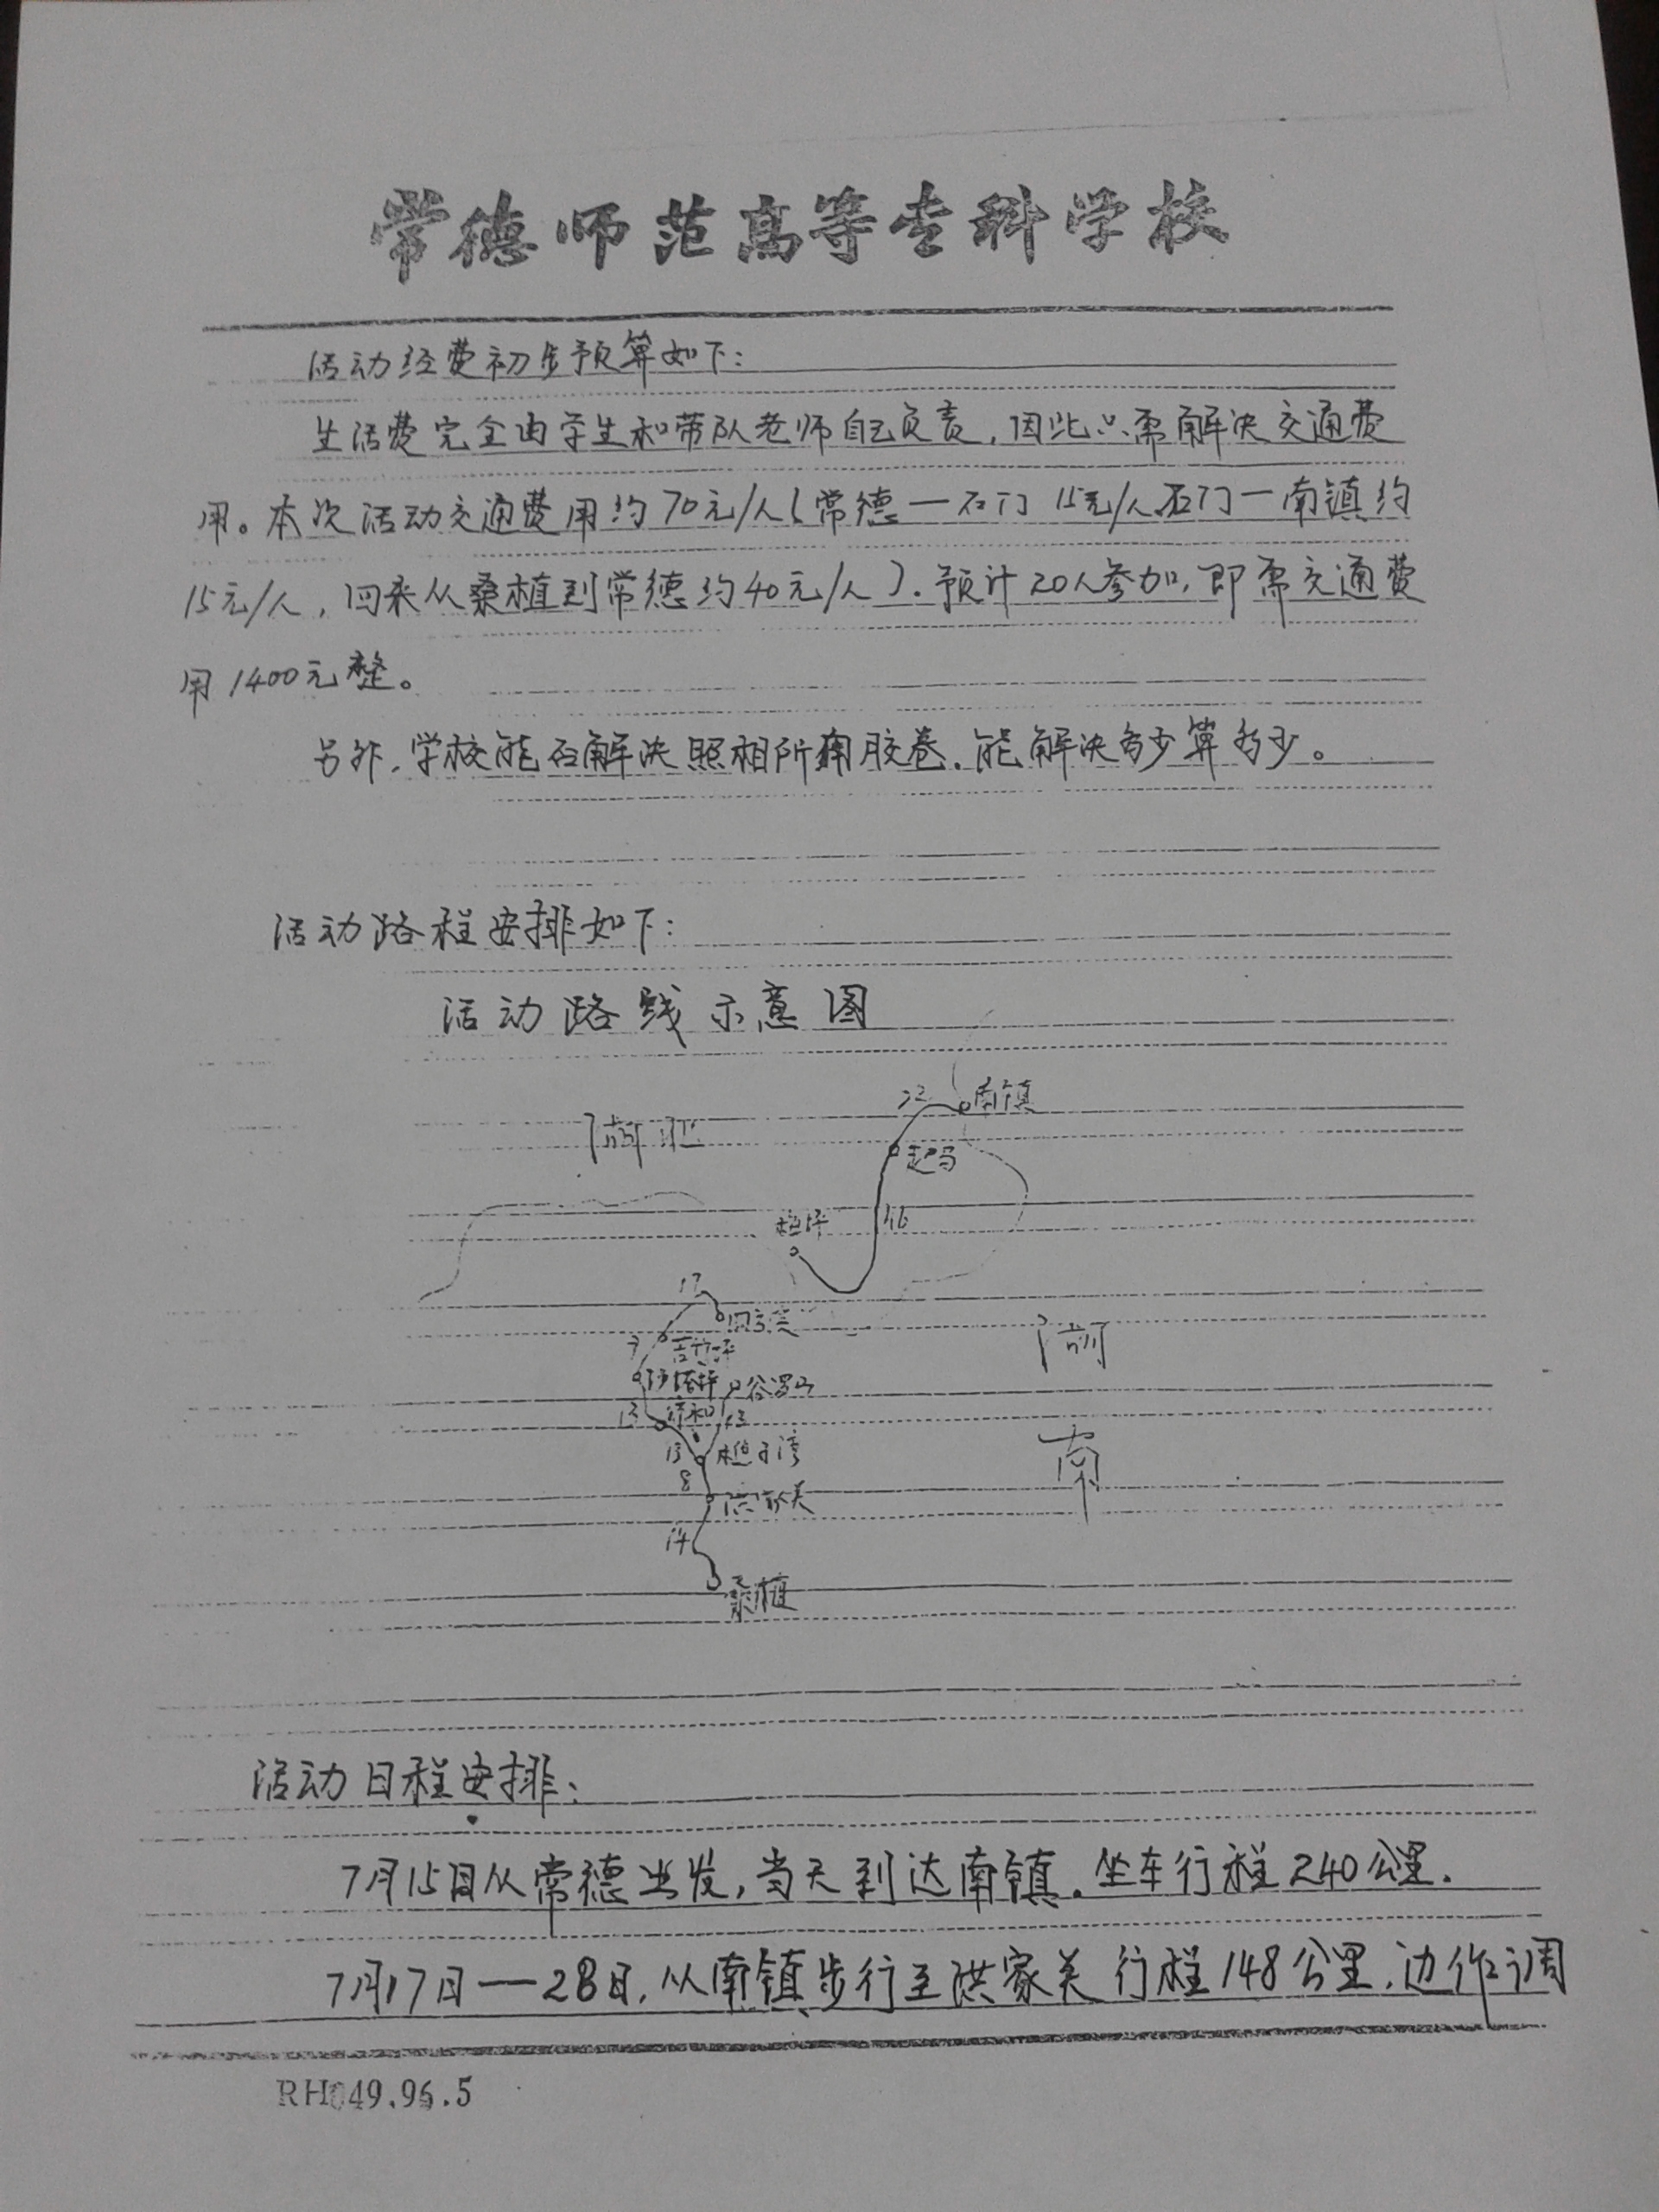 常德师范高等专科学校
活动经费初步预算如下：
生活费完全由学生和带队老师自己负责，因此只需解决交通费
用。本次活动交通费用约70元/人（常德—石门 15元/人，石门—南镇约
15元/人，回来从桑植到常德约40元/人）。预计20人参加，即需交通费
用1400元整。
另外，学校能否解决照相所用胶卷，能解决多少算多少。
活动路程安排如下：
活动路线示意图
南镇
湖
走马
46
17
7
谷罗山
13
13
湾
8
洪家关
湖
南
14
桑植
活动日程安排：
7月15日从常德出发，当天到达南镇。坐车行程240公里.
7月17日—28日，从南镇步行至洪家关 行程148公里，边作调
RH049.96.5